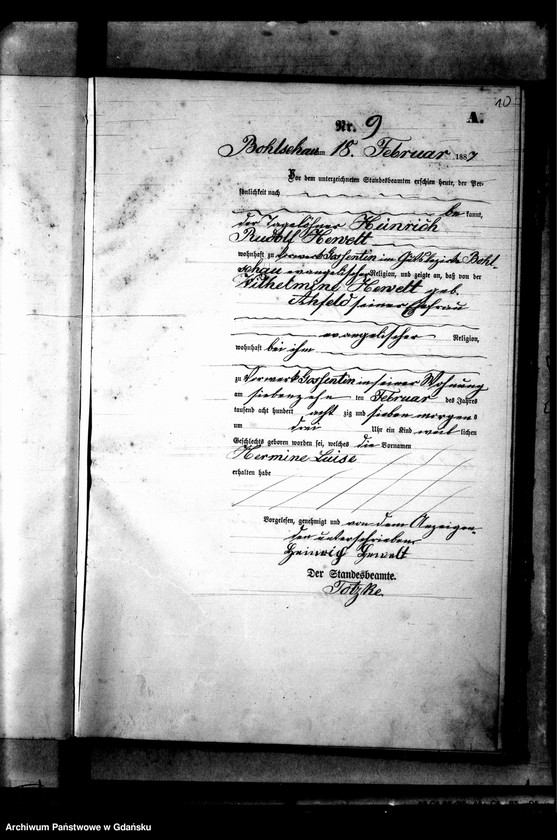 10
A.
Nr. 9
Bohlschau am 18. Februar 1887
Vor dem unterzeichneten Standesbeamten erschien heute, der Per-
sönlichkeit nach
be kannt,
der Tagelöhner Heinrich
Rudolf Hewelt
wohnhaft zu Vorwerk Gossentin im Gutsbezirk Bohl-
schau evangelischer Religion, und zeigte an, daß von der
Wilhelmine Hewelt geb.
Ahfeld seiner Ehefrau
evangelischer Religion,
wohnhaft bei ihm
zu Vorwerk Gossentin in seiner Wohnung
am siebenzehn ten Februar des Jahres
tausend acht hundert acht zig und sieben morgens
um drei Uhr ein Kind weib lichen
Geschlechts geboren worden sei, welches die Vornamen
Hermine Luise
erhalten habe
Vorgelesen, genehmigt und von dem Anzeigen-
den unterschrieben
Heinrich Hewelt
Der Standesbeamte.
Totzke.
Archiwum Państwowe w Gdańsku